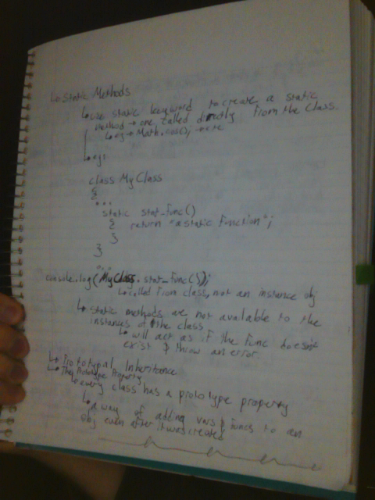 ↳ Static Methods
↳ use static keyword to create a static
method → one called directly from the class.
↳ eg → Math.
↳ eg:
class MyClass
{
...
static stat_func()
{ return "a static function";
}
}
console.log(MyClass.stat_func());
↳ called from class, not an instance obj
↳ static methods are not available to the
instances of the class
↳ will act as if the func doesn't
exist & throw an error
↳ Prototypal Inheritance
↳ The Prototype Property
↳ every class has a prototype property
↳ a way of adding vars & funcs to an
obj even after it was created